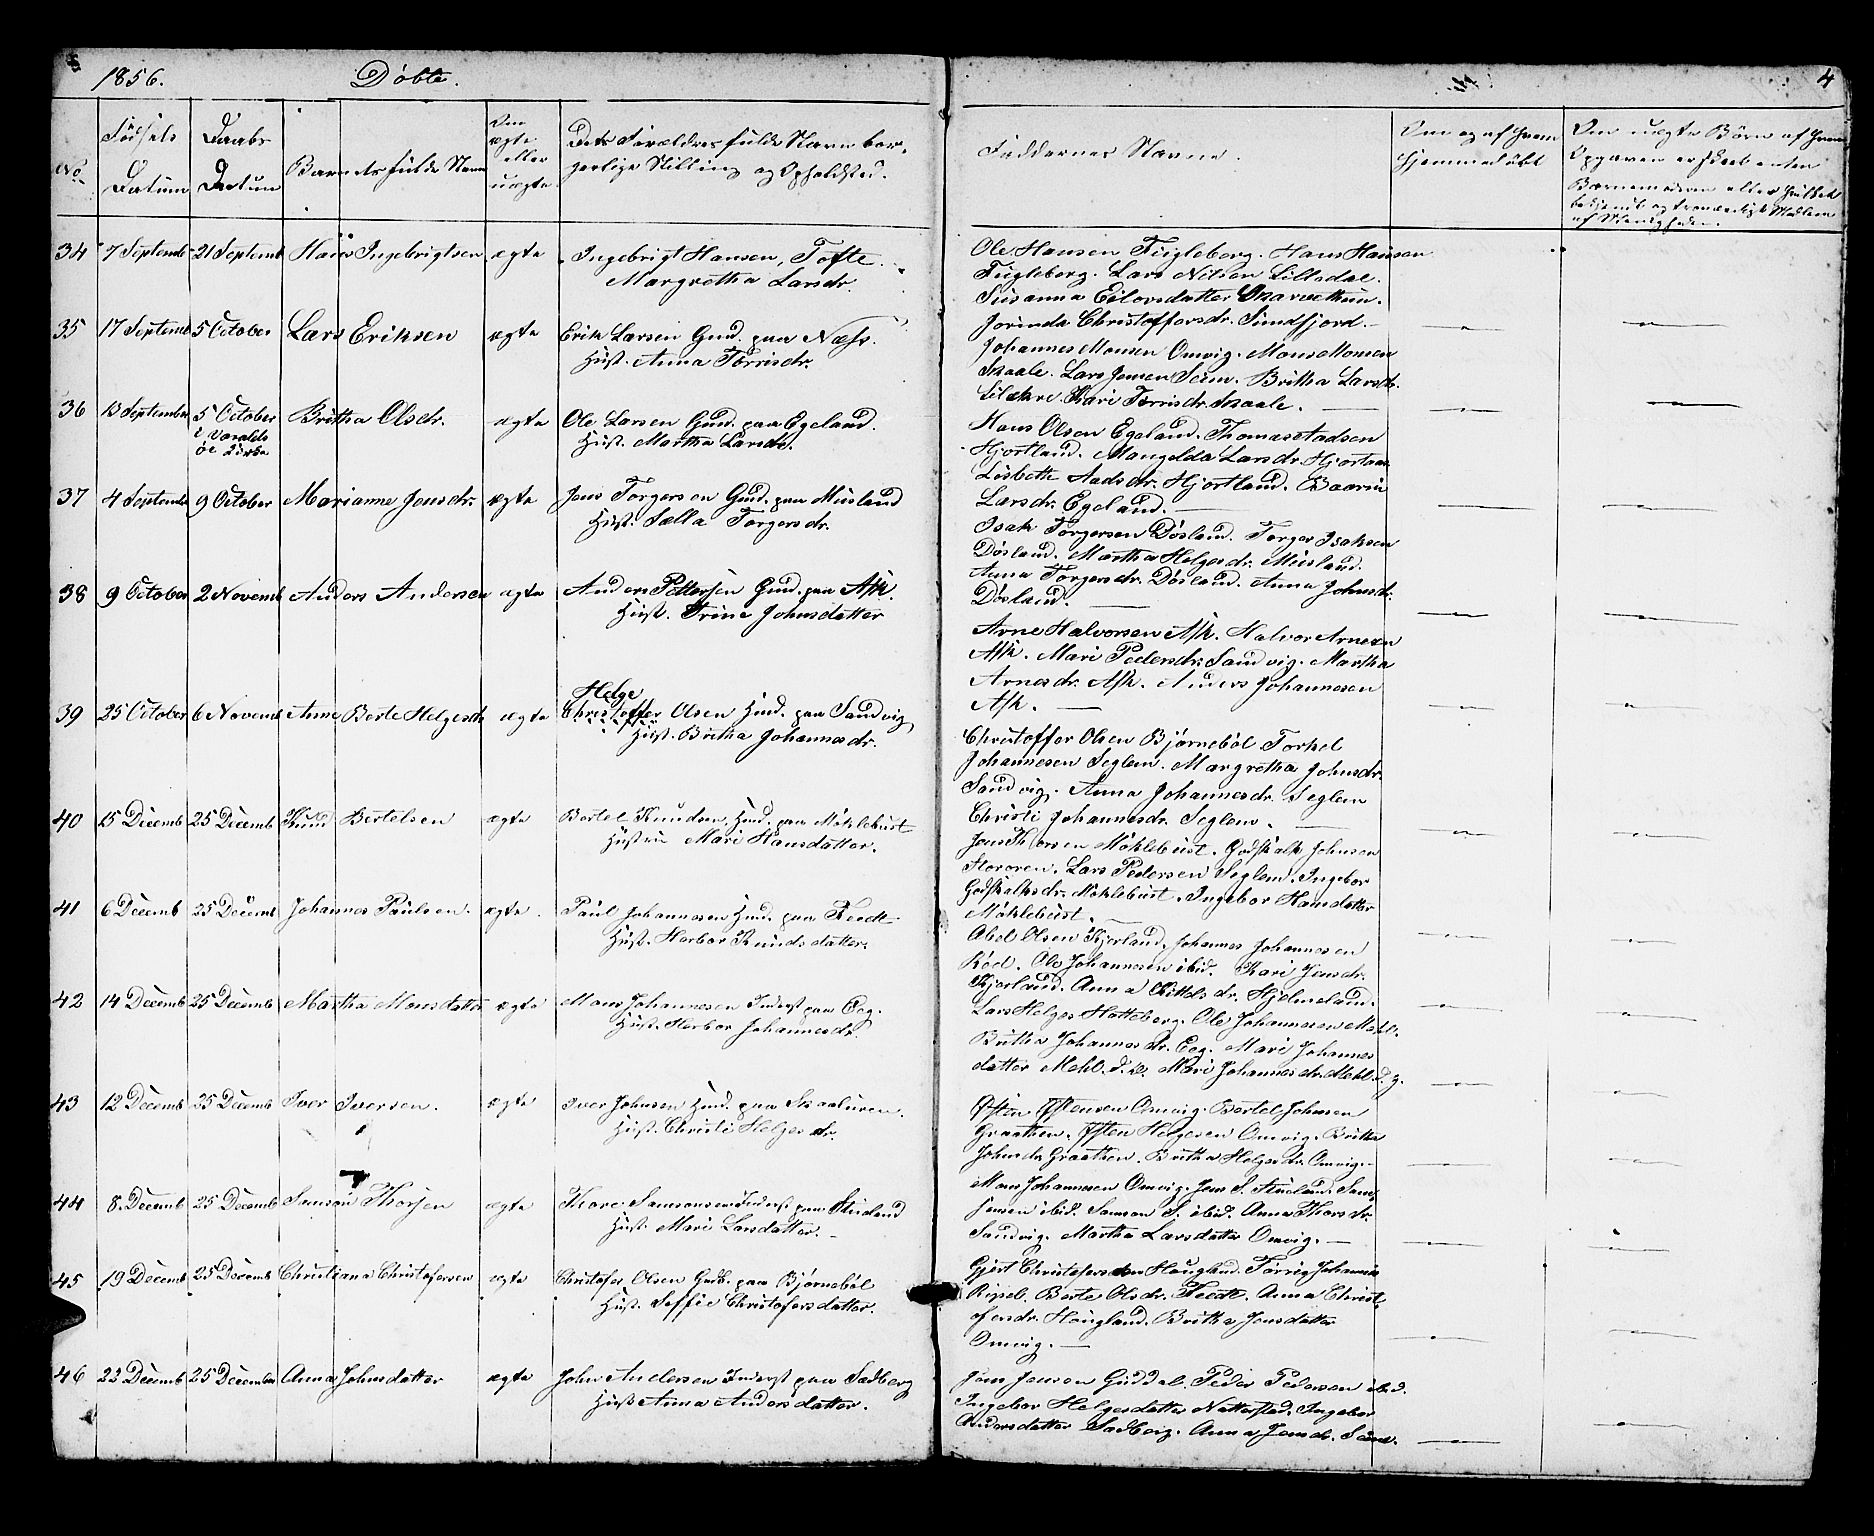 1856. Døbte. 4
No
Fødsels Datum
Daabs Datum
Barnets fulde Navn
Om ægte eller uægte
Dets Forældres fulde Navn bor-
gerlige Stilling og Opholdsted.
Faddernes Navne.
Om og af hvem
hjemmedøbt
Om uægte Børn af hvem
Opgaven er skeet enten
Barnemoderen eller
af Menigheden.
34 7 Septemb 21 Septemb Hans Ingebrigtsen ægte Ingebrigt Hansen, Tofte.
Margretha Larsdr.
Ole Hansen Fugleberg. Hans Hansen
Fugleberg. Lars Nilsen Lilledal.
Susanna Eilovsdatter
Jorinda Christoffersdr. Sundfjord.
35 17 Septemb 5 October Lars Eriksen ægte Erik Larsen Gmd. paa Næss.
Hust. Anna Torrisdr.
Johannes Monsen Omvig. Mons Monsen
Skaale. Lars Jensen Seim. Britha Larsdr.
Kari Torrisdr. Skaale.
36 13 September 5 October Britha Olsdr. ægte Ole Larsen Gmd. paa Egeland.
i Varalds
øe Kirke
Hust. Martha Larsdr.
Hans Olsen Egeland. Thomas Aadsen
Hjortland. Mangelda Larsdr. Hjortland
Lisbeth Aadsdr. Hjortland. Baarni
Larsdr. Egeland.
37 4 Septemb 9 October Marianne Jensdr. ægte Jens Torgersen Gmd. paa Musland
Hust. Sælla Torgersdr.
Isak Torgersen Døsland. Torger Isaksen
Døsland. Martha Helgesdr. Musland.
Anna Torgersdr. Døsland. Anna Johnsdr.
Døsland.
38 9 October 2 Novemb Anders Andersen ægte Anders Pettersen Gmd. paa Ask.
Hust. Trine Johnsdatter
Arne Halvorsen Ask. Halvor Arnesen
Ask. Mari Pedersdr. Sandvig. Martha
Arnesdr. Ask. Anders Johannesen
Ask.
Helge
39 25 October 6 Novemb Anne Berte Helgesdr. ægte Christoffer Olsen Hmd. paa Sandvig
Hust. Britha Johannesdr.
Christoffer Olsen Bjørnebøl. Torkel
Johannesen Seglem. Margretha Johnsdr.
Sandvig. Anna Johannesdr. Seglem
Christi Johannesdr. Seglem.
40 15 Decemb 25 Decemb Knud Bertelsen ægte Bertel Knudsen Hmd. paa Møklebust
Hustru Mari Hansdatter.
Jens Thorsen Møklebust. Godskalk Johnsen
Lars Pedersen Seglem. Ingebor
Godskalksdr. Møklebust. Ingebor Hansdatter
Møklebust.
41 6 Decemb 25 Decemb Johannes Paulsen. ægte. Paul Johannesen Hmd. paa Teedt
Hust. Herbor Knudsdatter.
Abel Olsen Kjerland. Johannes Johannesen
Rød. Ole Johannesen ibid. Kari Jensdr.
Kjerland. Anna Kittelsdr. Hjelmeland.
42 14 Decemb 25 Decemb Martha Monsdatter ægte Mons Johannesen Inderst paa Eeg.
Hust. Herbor Johannesdr.
Lars Helges Hatteberg. Ole Johannesen Mehl.
Britha Johannesdr. Eeg. Mari Johannes
datter Mehl. d. æ. Mari Johannesdr. Mehl. d. y.
43 12 Decemb 25 Decemb Iver Iversen. ægte Iver Johnsen Hmd. paa Skaaluren.
Hust. Christi Helgesdr.
Østen Østensen Omvig. Bertel Johnsen
Graathen. Østen Helgesen Omvig. Britha
Johnsdr. Graathen. Britha Helgesdr. Omvig.
44 8. Decemb 25 Decemb Samson Thorsen ægte Thore Samsonsen Inderst paa Stueland
Hust. Mari Larsdatter.
Mons Johannesen Omvig. Jens S. Stueland. Sams.
Jensen ibid. Samson S. ibid. Anna Thorsdr.
Sandvig. Martha Larsdatter Omvig.
45 19 Decemb 25 Decemb Christiana Christofersen ægte Christofer Olsen Gmd. paa Bjørnebøl
Hust. Seffie Christofersdatter.
Gjert Christofersen Haugland. Torris Johannes
Berte Olsdr. Teedt. Anna Christ-
ofersdr. Haugland. Britha Jensdatter
Omvig.
46 22 Decemb 25 Decemb Anna Johnsdatter ægte John Andersen Inderst paa Sadberg
Hust. Anna Andersdatter.
Jens Jensen Guddal. Peder Pedersen ibid.
Ingebor Helgesdatter Nattersted. Ingebor
Andersdatter Sadberg. Anna Jensdr.